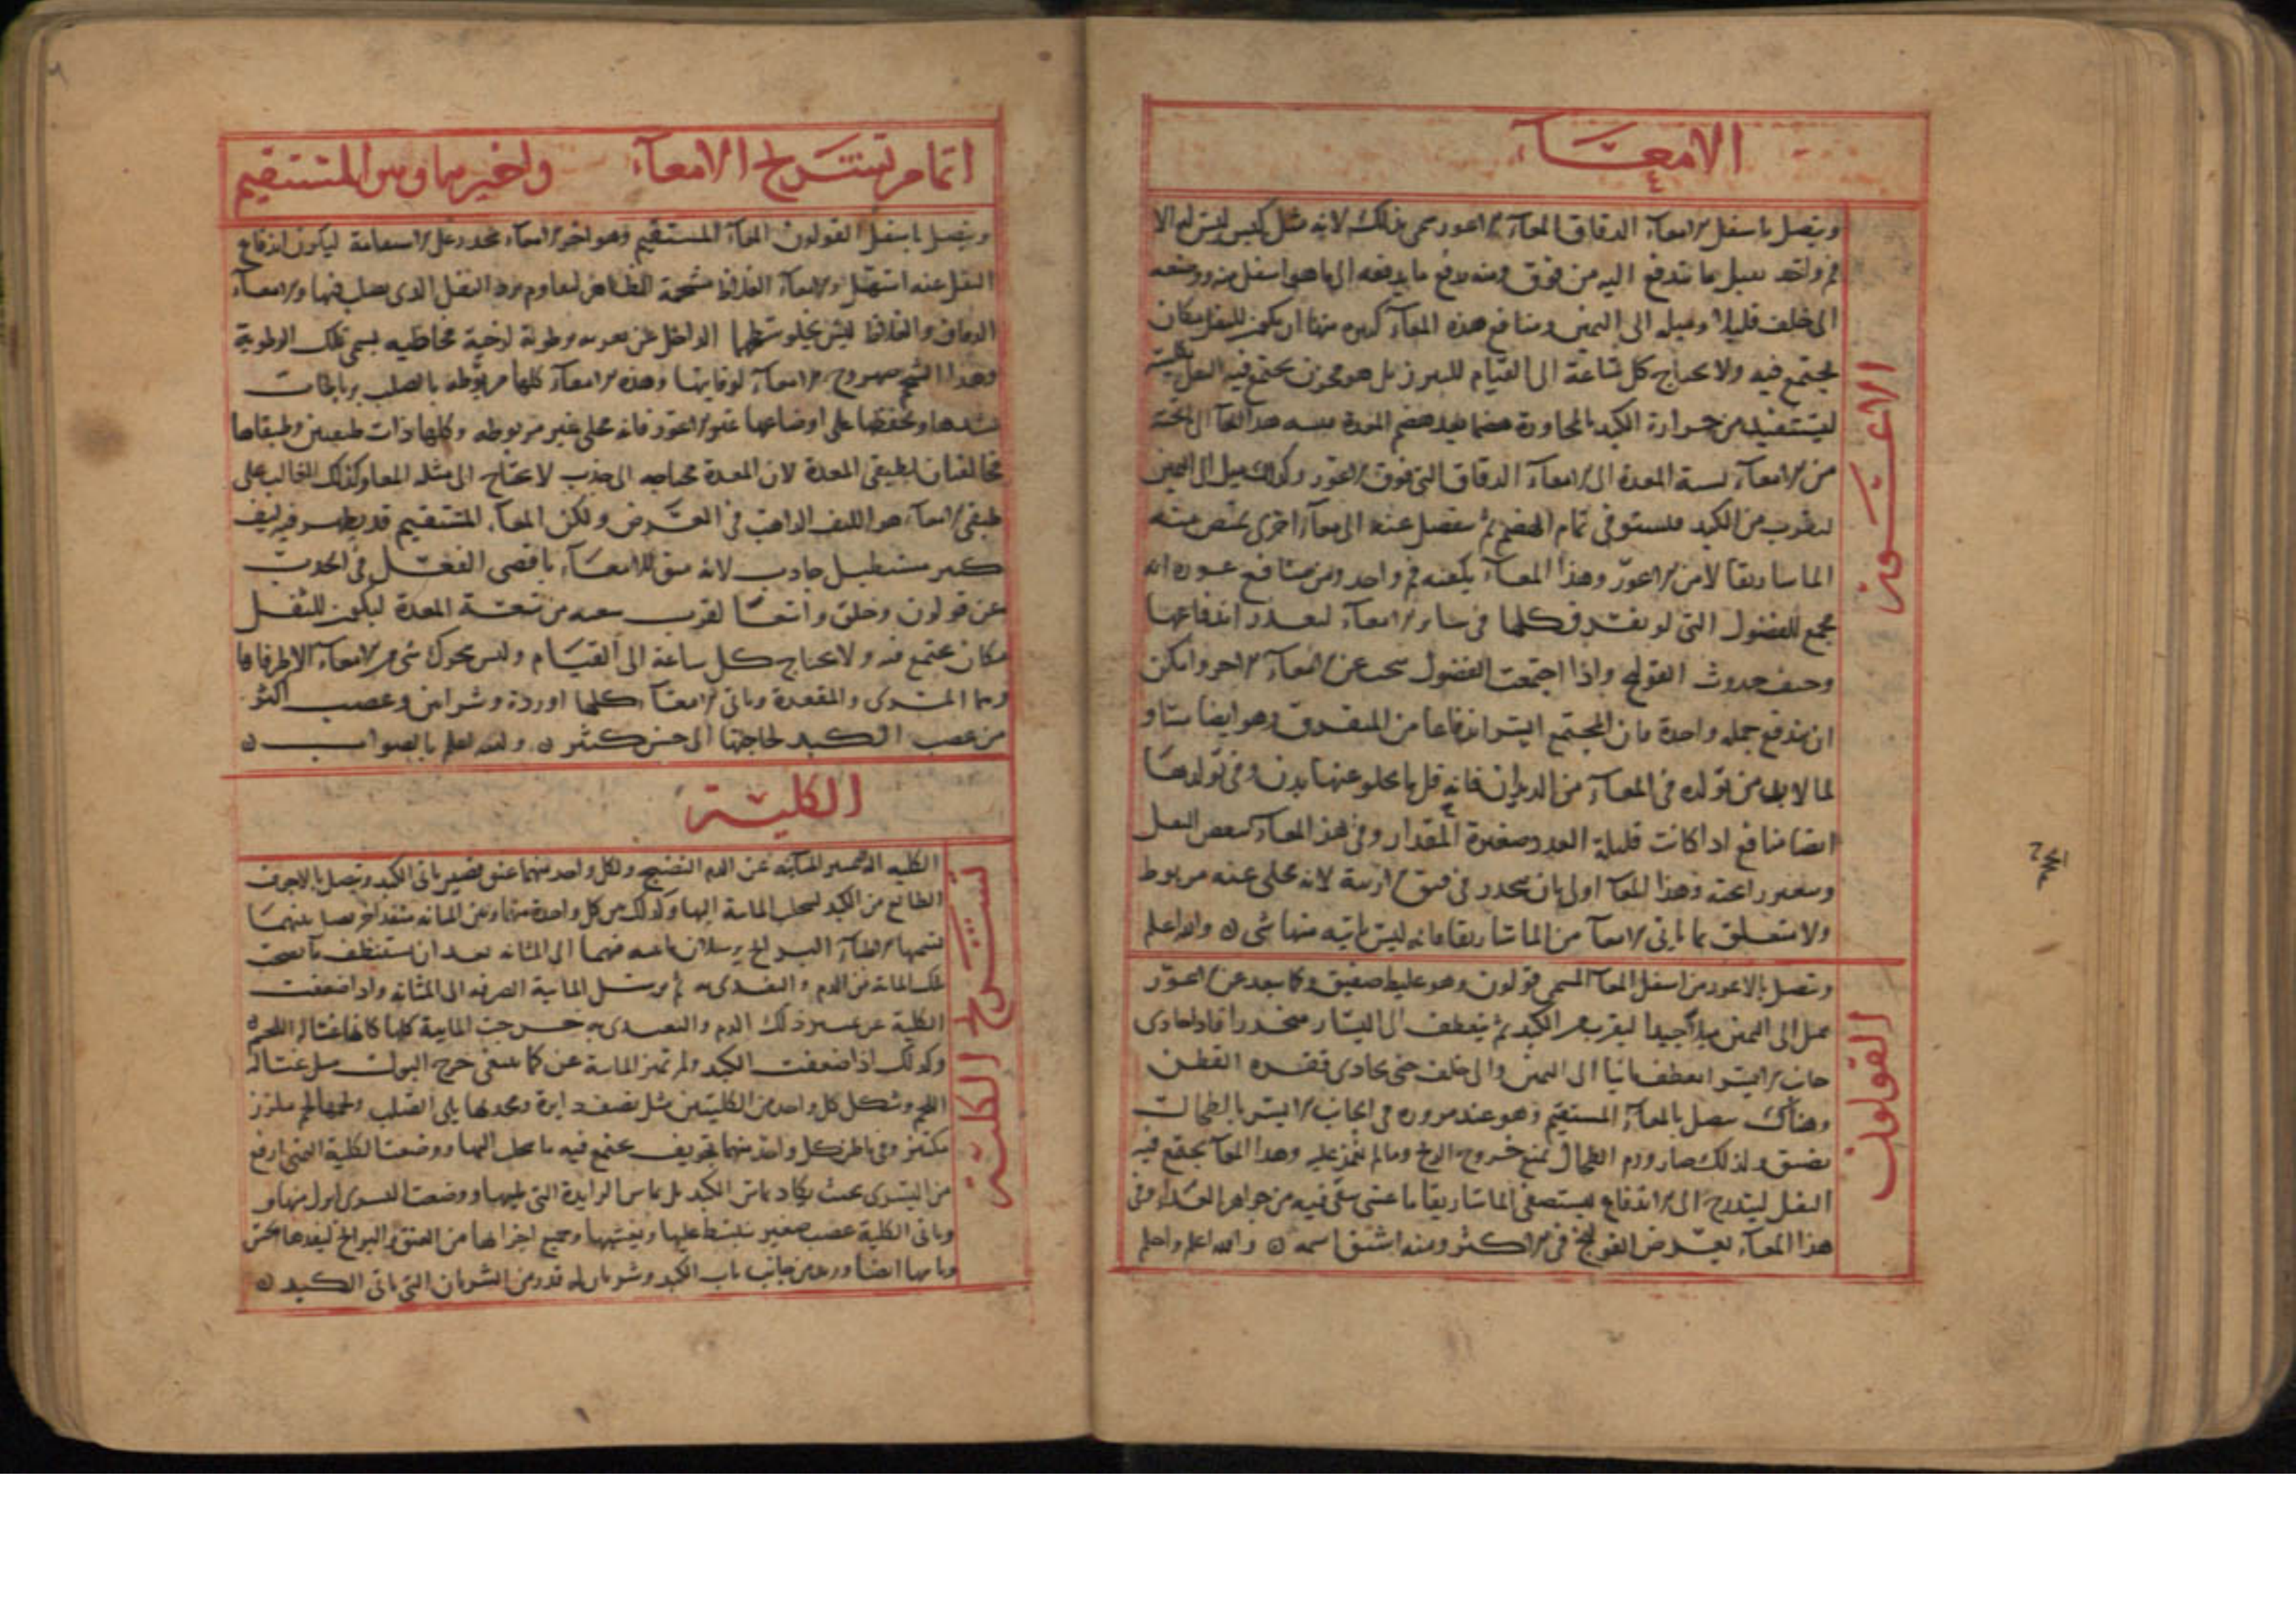 الامعاء
الاعور
ويتصل باسفل الامعاء الدقاق المعاء الاعور سمى بذلك لانه مثل كيس ليس له الا
فم واحد يقبل ما يندفع اليه من فوق ومنه يدفع ما يدفعه الى ما هو اسفل منه ووضعه
الى خلف قليلا وميله الى اليمين ومنافع هذه المعاء كثيره منها ان يكون للثفل مكان
يجتمع فيه ولا يحتاج كل ساعة الى القيام للتبرز بل هو مخزن يجتمع فيه الثفل
ليستفيد من حرارة الكبد بالمجاورة هضما بعد هضم المعدة نسبه هذا المعا الى تحته
من الامعاء نسبة المعدة الى الامعاء الدقاق التى فوق الاعور وكذلك ميل الى اليمين
ليقرب من الكبد فيستوفى تمام الهضم ثم ينفصل عنه الى معاء اخرى تمتص منه
الماساريقا لامن الاعور وهذا المعاء يكفيه فم واحد ومن منافع عوره انه
مجمع للفضول التى لو تفرق كلها فى ساير الامعاء لتعذر اندفاعها
وخيف حدوث القولنج واذا اجتمعت الفضول تنحت عن الامعاء الاخر وامكن
ان تندفع جمله واحدة فان المجتمع ايسر اندفاعا من المتفرق وهو ايضا ماو
لما لا بد من تولده فى المعاء من الديدان فانه قل ما يخلو عنها بدن وفى تولدها
ايضا منافع اذا كانت قليلة العدد صغيرة المقدار وفى هذا المعاء يتعفن الثفل
وتتغير رائحته وهذا المعا اولى بان ينحدر فى فتق الاربية لانه مخلى عنه مربوط
ولا متعلق بما ياتى الامعا من الماساريقا فانه ليس ياتيه منها شى ن والله اعلم
القولون
ويتصل بالاعور من اسفل المعا المسمى قولون وهو غليظ صفيق وكما يبعد عن الاعور
يميل الى اليمين ميلا جيدا ليقرب من الكبد ثم ينعطف الى اليسار منحدرا فاذا حاذى
جانب الايسر انعطف ثانيا الى اليمين والى خلف حتى يحاذى فقره القطن
وهناك يتصل بالمعاء المستقيم وهو عند مروره فى الجانب الايسر بالطحال
يضيق ولذلك صار ورم الطحال يمنع خروج الريح ومالم يغمز عليه وهذا المعا يجتمع فيه
الثفل ليتدرج الى الاندفاع ليستصفى الماساريقا ما عسى يبقى فيه من جواهر الغذاء وفى
هذا المعاء يعرض القولنج فى الاكثر ومنه اشتق اسمه ن والله اعلم واحلم
اتمام تشريح الامعاء واخيرها وهو المستقيم
ويتصل باسفل القولون المعاء المستقيم وهو اخر الامعاء ينحدر على الاستقامة ليكون اندفاع
الثفل عنه اسهل والامعاء الغلاظ مشحمة الظاهر ليقاوم برد الثفل الذى يحصل فيها والامعاء
الدقاق والغلاظ ليس يخلو سطحها الداخل عن تغريه رطوبة لزجة مخاطيه يسمى تلك الرطوبة
وهذا الشحم صهروج الامعاء لوقايتها وهذه الامعاء كلها مربوطه بالصلب برباطات
تشدها وتحفظها على اوضاعها غير الاعور فانه مخلى غير مربوطه وكلها ذات طبقتين وطبقاها
تخالفان لطبقتى المعدة لان المعدة محتاجه الى جذب لا يحتاج الى مثله المعا وكذلك الغالب على
طبقتى الامعاء هو الليف الذاهب فى العرض ولكن المعاء المستقيم قد يظهر فيه ليف
كثير مستطيل جاذب لانه منق للامعاء باقصى الفعل فى الجذب
عن قولون وخلق واسعا لقرب سعته من سعة المعدة ليكون للثفل
مكان يجتمع فيه ولا يحتاج كل ساعة الى القيام وليس يتحرك شى من الامعاء الا طرفاها
وهما المرى والمقعدة وياتى الامعاء كلها اوردة وشرايين وعصب اكثر
من عصب الكبد لحاجتها الى حس كثير ن والله اعلم بالصواب ن
الكلية
تشريح الكلية
الكليه اله تميز المائيه عن الدم النضيج ولكل واحد منهما عنق قصير ياتى الكبد ويتصل بالاجوف
الطالع من الكبد لتجلب المائية اليها وكذلك من كل واحدة منها وبين المثانه منفذ اخر يصل بينهما
تلك المائة من الدم والتغدى به ثم يرسل المائية الصرفه الى المثانه واذا ضعفت
الكلية عن تمييز ذلك الدم والتغدى به خرجت المائية كلها كانها غسالة اللحم
وكذلك اذا ضعفت الكبد ولم تميز المائية عن كما ينبغى خرج البول مثل غسالة
اللحم وشكل كل واحد من الكليتين مثل نصف دايرة ومحدبها يلى الصلب ولحمها لحم ملزز
مكتنز وفى باطن كل واحد منهما تجويف يجتمع فيه ما يجلب اليها ووضعت الكلية اليمنى ارفع
من اليسرى بحيث يكاد يماس الكبد بل يماس الزايدة التى تليها ووضعت اليسرى انزل منها و
وياتى الكلية عصب صغير ينبسط عليها ويغشيها وجميع اجزائها من العنق والبرابخ ليفدها حس
وياتيها ايضا وريد من جانب باب الكبد وشريان له قدر من الشريان التى ياتى الكبد ن